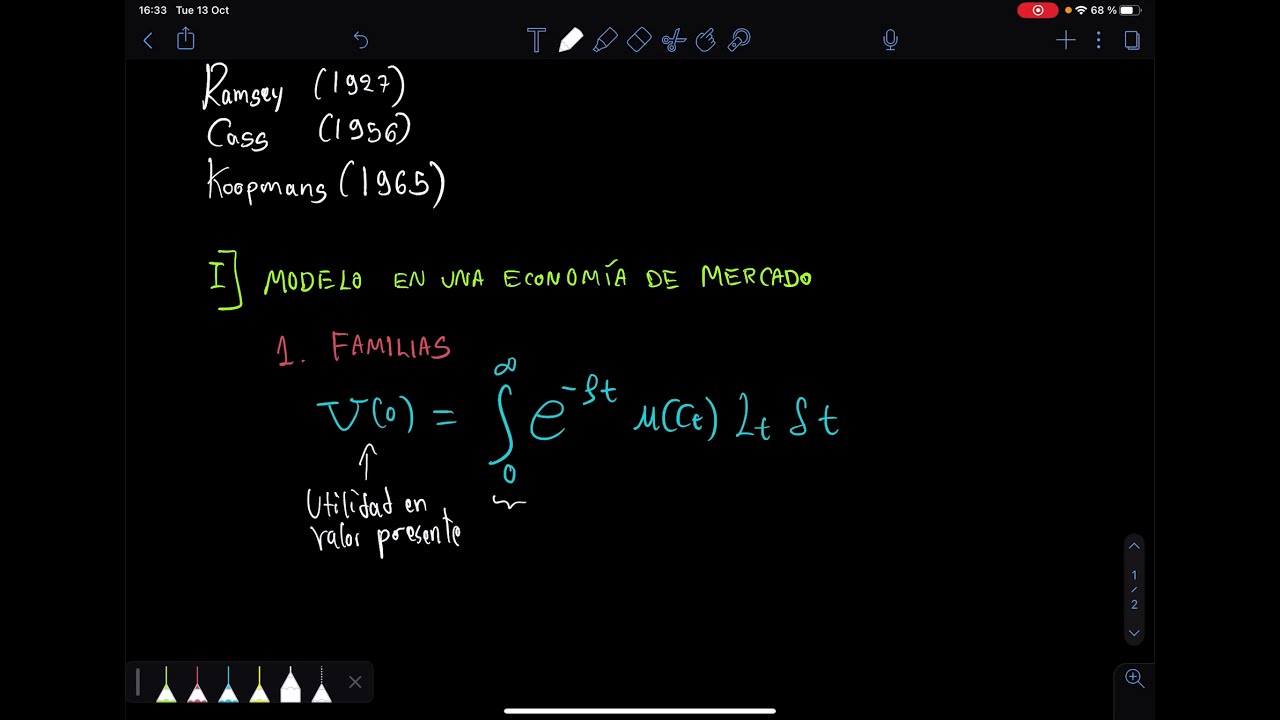 16:33 Tue 13 Oct 68 %
Ramsey (1927)
Cass (1956)
Koopmans (1965)
I] MODELO EN UNA ECONOMÍA DE MERCADO
1. FAMILIAS
U(0) = ∫₀^∞ e^{-ρt} u(Ct) Lt δt
↑
Utilidad en
valor presente
1
/
2